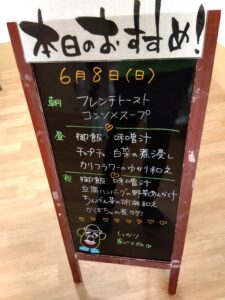 本日のおすすめ!
6月8日(日)
朝 フレンチトースト
コンソメスープ
昼 御飯 味噌汁
チャプチェ 白菜の煮浸し
カリフラワーのゆかり和え
夜 御飯 味噌汁
豆腐ハンバーグの野菜あんかけ
ちんげん菜の胡麻和え
かぼちゃの煮物
しっかり
食べてね